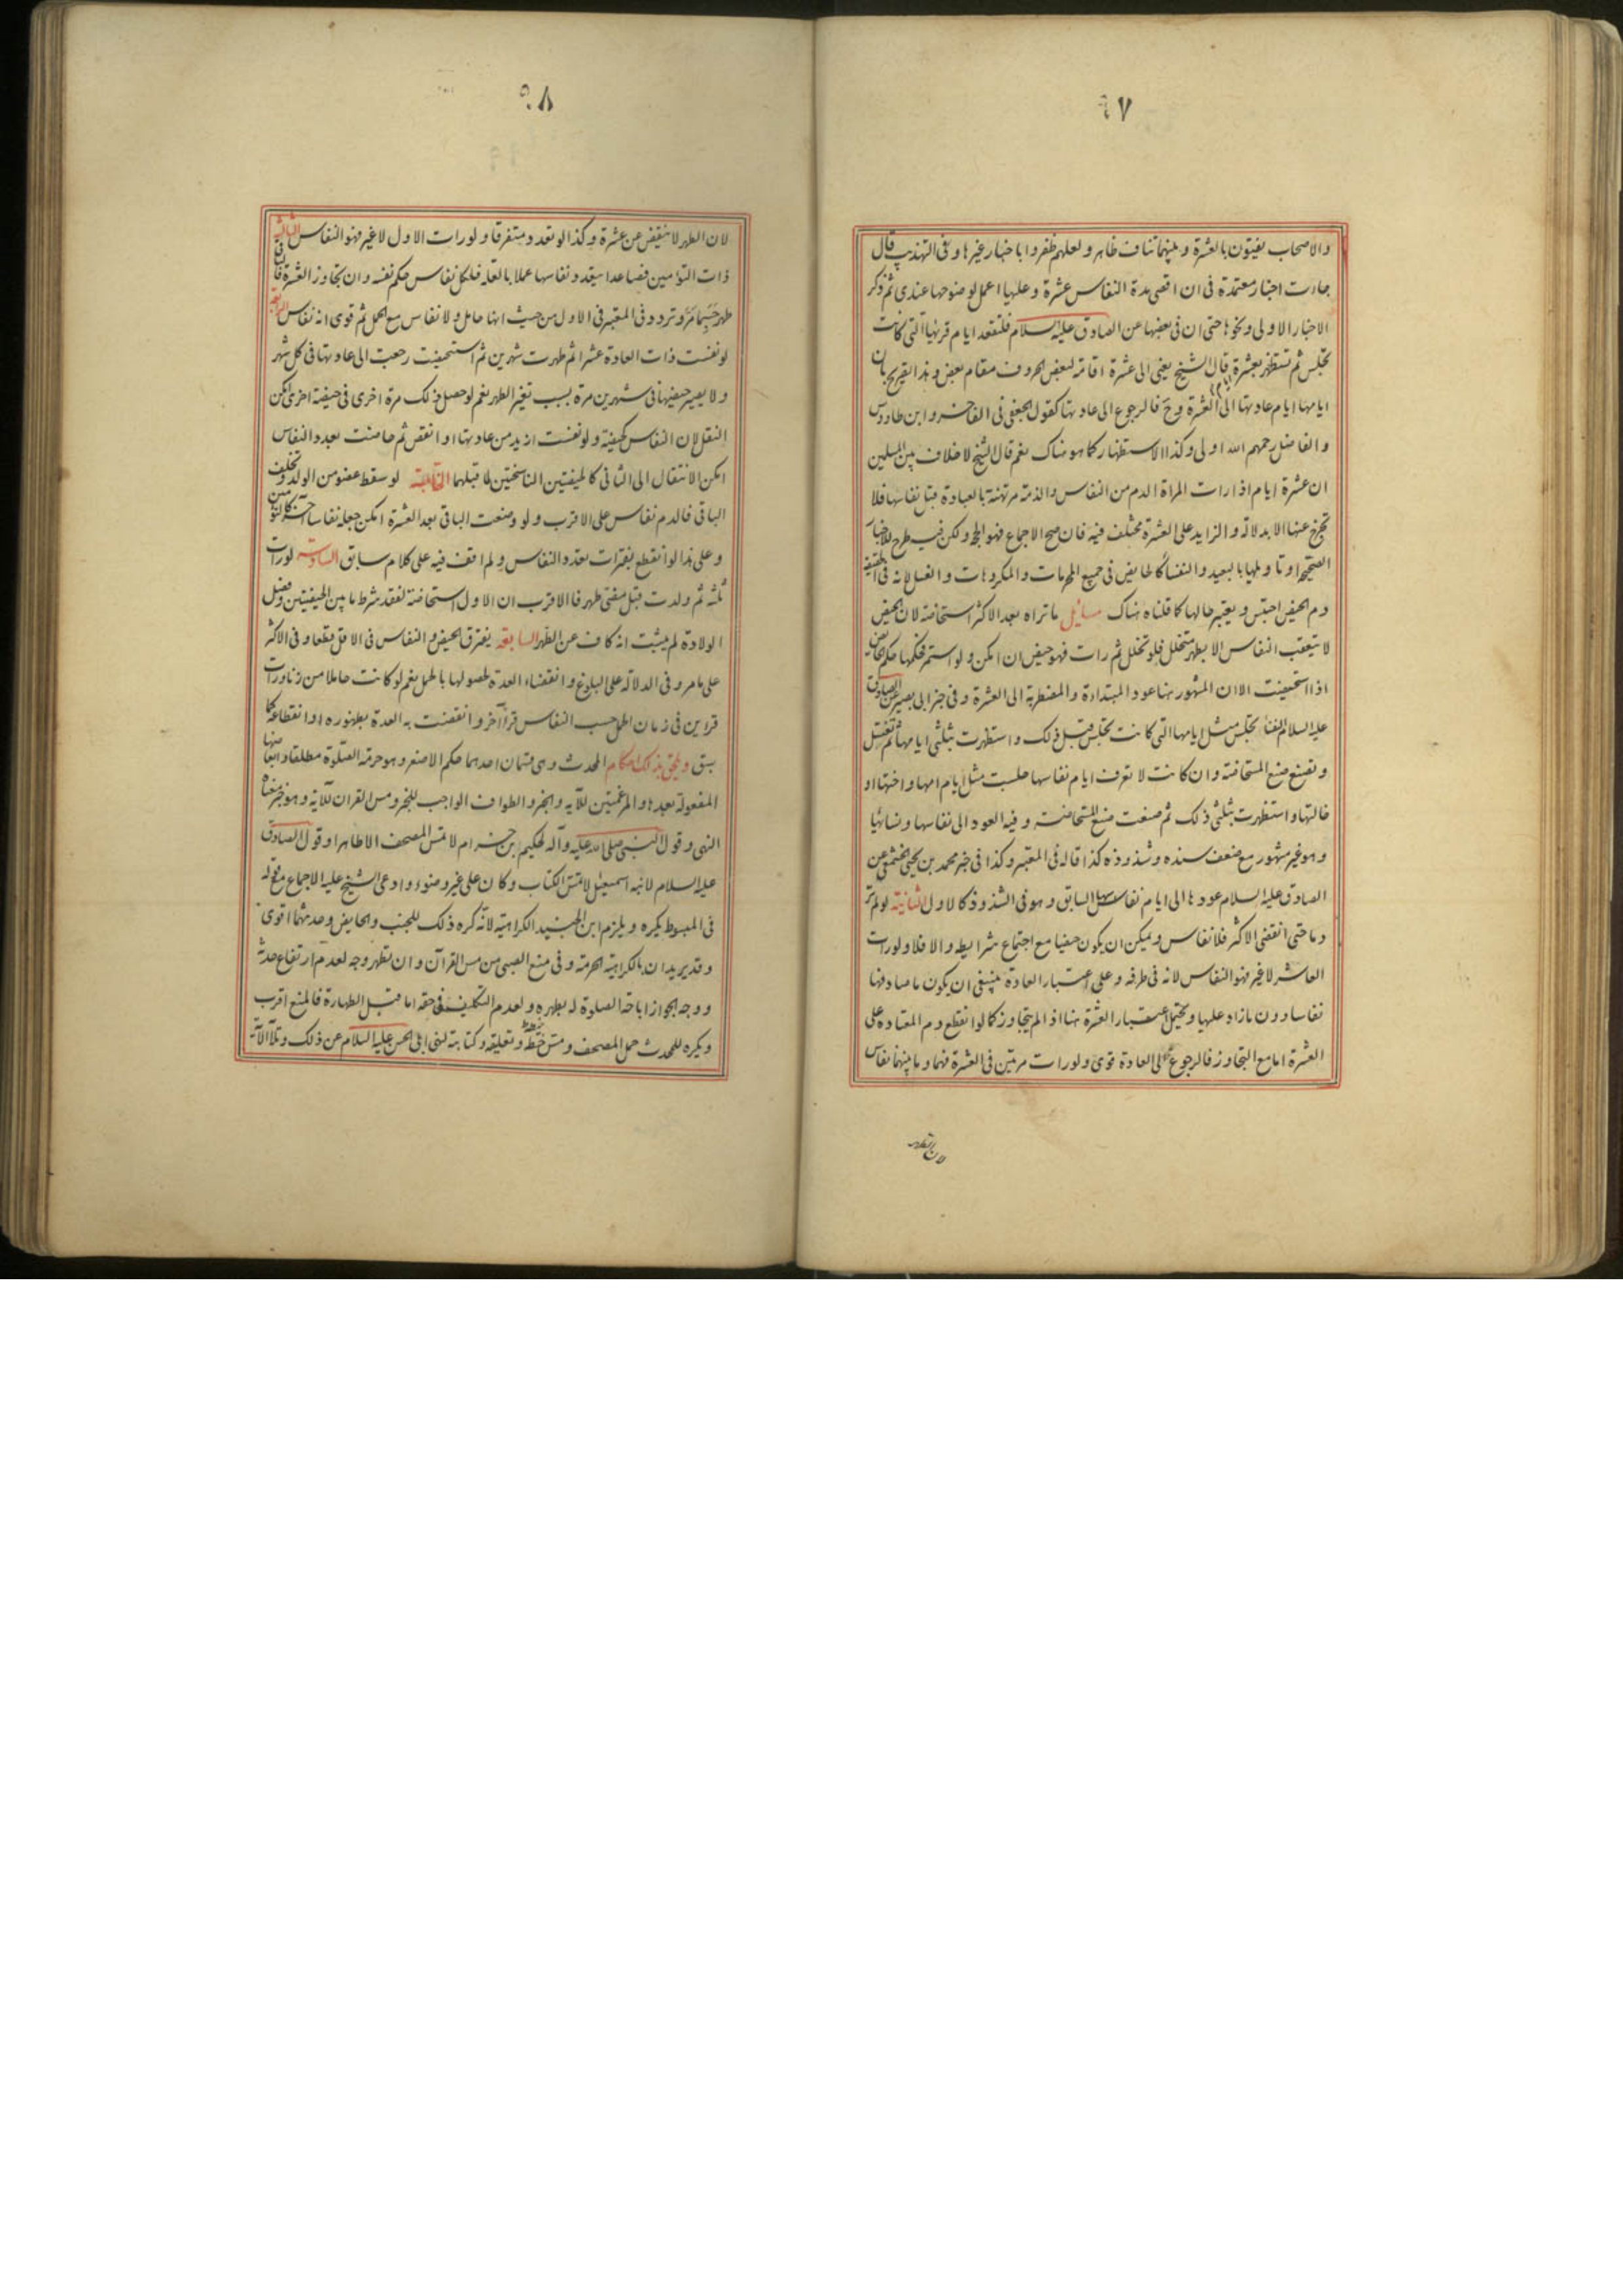 ٩٧
والاصحاب يفتون بالعشرة وبينهما تناف ظاهر ولعلهم ظفروا باخبار غيرها وفى التهذيب قال
جاءت اخبار معتمدة فى ان اقصى مدة النفاس عشرة وعليها اعمل لوضوحها عندى ثم ذكر
الاخبار الاولى ونحوها حتى ان فى بعضها عن الصادق عليه السلام فلتقعد ايام قرئها التى كانت
تجلس ثم تستظهر بعشرة قال الشيخ يعنى الى عشرة اقامة لبعض الحروف مقام بعض وهذا تصريح بان
ايامها ايام عادتها الى العشرة وح فالرجوع الى عادتها كقول الجعفى فى الفاخر وابن طاووس
والفاضل رحمهم الله اولى وكذا الاستظهار كما هو هناك نعم قال الشيخ لا خلاف بين المسلمين
ان عشرة ايام اذا رات المراة الدم من النفاس والذمة مرتهنة بالعبادة قبل نفاسها فلا
تخرج عنها الا بدلالة والزايد على العشرة مختلف فيه فان صح الاجماع فهو الحجة ولكن فيه طرح للاخبار
الصحيحة او تاويلها بالبعيد والنفساء كالحايض فى جميع المحرمات والمكروهات والغسل لانه فى الحقيقة
دم الحيض احتبس ويعتبر حالها كما قلناه هناك مسائل ما تراه بعد الاكثر استحاضة لان الحيض
لا يتعقب النفاس الا بطهر متخلل فلو تخلل ثم رات فهو حيض ان امكن ولو استمر فحكمها حكم الحايض
اذا استحيضت الا ان المشهور هنا عود المبتداة والمضطربة الى العشرة وفى خبر ابى بصير عن الصادق
عليه السلام النفسا تجلس مثل ايامها التى كانت تجلس قبل ذلك واستظهرت بثلثى ايامها ثم تغتسل
وتصنع صنع المستحاضة وان كانت لا تعرف ايام نفاسها جلست مثل ايام امها واختها او
خالتها واستظهرت بثلثى ذلك ثم صنعت صنع المستحاضة وفيه العود الى نفاسها ونسائها
وهو غير مشهور مع ضعف سنده وشذوذه كذا قاله فى المعتبر وكذا فى خبر محمد بن يحيى الخثعمى عن
الصادق عليه السلام عودها الى ايام نفاسها السابق وهو فى الشذوذ كالاول الثانية لو لم تر
دما حتى انقضى الاكثر فلا نفاس ويمكن ان يكون حيضا مع اجتماع شرايطه والا فلا ولو رات
العاشر لا غير فهو النفاس لانه فى طرفه وعلى اعتبار العادة ينبغى ان يكون ما صادفها
نفاسا دون ما زاد عليها ويحتمل اعتبار العشرة هنا اذا لم يتجاوز كما لو انقطع دم المعتادة على
العشرة اما مع التجاوز فالرجوع الى العادة قوى ولو رات مرتين فى العشرة فهما وما بينهما نفاس
لان الطهر
٩٨
لان الطهر لا ينقض عن عشرة وكذا لو تعدد متفرقا ولو رات الاول لا غير فهو النفاس الثالثة
ذات التؤمين فصاعدا يتعدد نفاسها عملا بالعلة فلكل نفاس حكم نفسه وان تجاوز العشرة فالثانى
طهر حسبما مر وتردد فى المعتبر فى الاول من حيث انها حامل ولا نفاس مع الحمل ثم قوى انه نفاس الرابعة
لو نفست ذات العادة عشرا ثم طهرت شهرين ثم استحيضت رجعت الى عادتها فى كل شهر
ولا يصير حيضها فى شهرين مرة بسبب تغير الطهر نعم لو حصل ذلك مرة اخرى فى حيضة اخرى امكن
النقل لان النفاس كحيضة ولو نفست ازيد من عادتها او انقص ثم حاضت بعدد النفاس
امكن الانتقال الى الثانى كالحيضتين الناسختين لما قبلهما الخامسة لو سقط عضو من الولد وتخلف
الباقى فالدم نفاس على الاقرب ولو وضعت الباقى بعد العشرة امكن جعله نفاسا آخر كالتؤمين
وعلى هذا لو انقطع بفترات تعدد النفاس ولم اقف فيه على كلام سابق السادسة لو رات
ثلثه ثم ولدت قبل مضى طهر فالاقرب ان الاول استحاضة لفقد شرط ما بين الحيضتين وفصل
الولادة لم يثبت انه كاف عن الطهر السابعة يفترق الحيض والنفاس فى الاقل قطعا وفى الاكثر
على ما مر وفى الدلالة على البلوغ وانقضاء العدة لحصولها بالحمل نعم لو كانت حاملا من زنا ورات
قراين فى زمان الحمل حسب النفاس قرا آخر وانقضت به العدة بظهوره او انقطاعه كما
سبق ويلحق بذلك احكام المحدث وهى قسمان احدهما حكم الاصغر وهو حرمة الصلوة مطلقا وابعاضها
المفعولة بعدها والمرغمتين للآية والخبر والطواف الواجب للخبر ومس القران للآية وهو خبر معناه
النهى وقول النبى صلى الله عليه وآله لحكيم بن حزام لا تمس المصحف الا طاهرا وقول الصادق
عليه السلام لابنه اسمعيل لا تمس الكتاب وكان على غير وضوء وادعى الشيخ عليه الاجماع مع قوله
فى المبسوط يكره ويلزم ابن الجنيد الكراهية لانه كره ذلك للجنب والحايض وحدثهما اقوى
وقد يريدان بالكراهية الحرمة وفى منع الصبى من مس القرآن وان تطهر وجه لعدم ارتفاع حدثه
ووجه الجواز اباحة الصلوة له بطهره ولعدم التكليف فى حقه اما قبل الطهارة فالمنع اقرب
ويكره للمحدث حمل المصحف ومس خيطه وتعليقه وكتابته لنهى ابى الحسن عليه السلام عن ذلك وتلا الآية